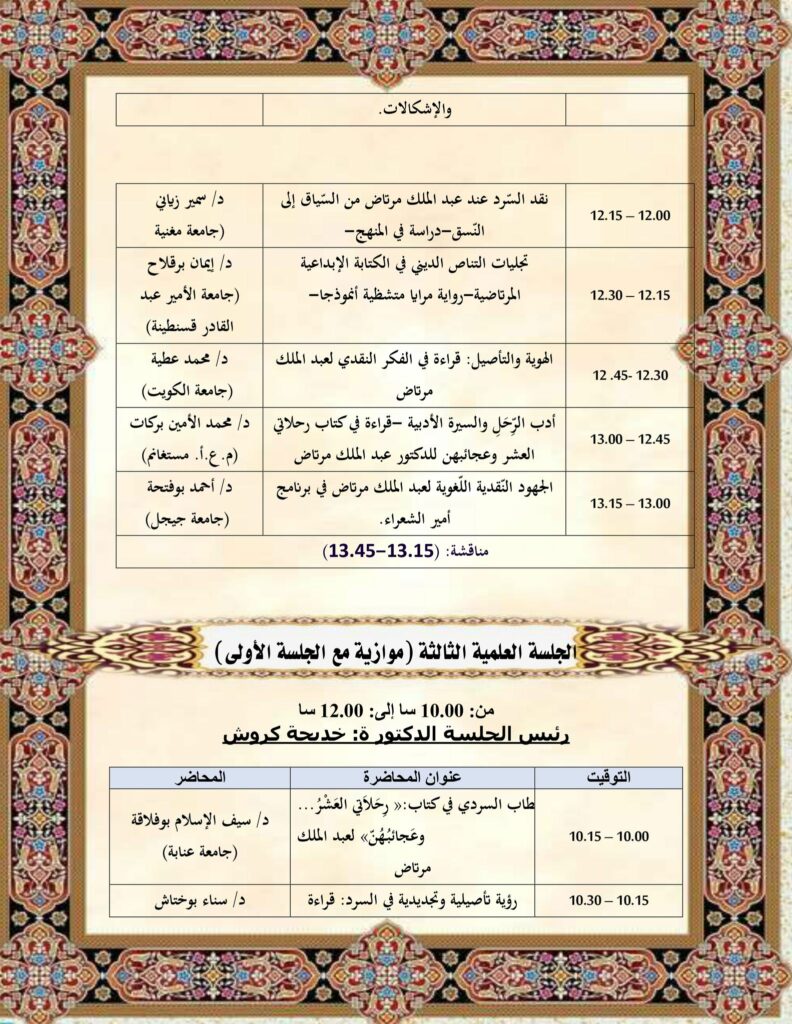 والإشكالات.
12.00 – 12.15 نقد السّرد عند عبد الملك مرتاض من السّياق إلى د/ سمير زياني
النّسق–دراسة في المنهج– (جامعة مغنية
12.15 – 12.30 تجليات التناص الديني في الكتابة الإبداعية د/ إيمان برقلاح
المرتاضية–رواية مرايا متشظية أنموذجا– (جامعة الأمير عبد
القادر قسنطينة)
12.30 -45. 12 الهوية والتأصيل: قراءة في الفكر النقدي لعبد الملك د/ محمد عطية
مرتاض (جامعة الكويت)
12.45 – 13.00 أدب الرِّحَلِ والسيرة الأدبية –قراءة في كتاب رحلاتي د/ محمد الأمين بركات
العشر وعجائبهن للدكتور عبد الملك مرتاض (م.ع.أ. مستغانم)
13.00 – 13.15 الجهود النّقدية اللّغوية لعبد الملك مرتاض في برنامج د/ أحمد بوفتحة
أمير الشعراء. (جامعة جيجل)
مناقشة: (13.15–13.45)
الجلسة العلمية الثالثة (موازية مع الجلسة الأولى)
من: 10.00 سا إلى: 12.00 سا
رئيس الجلسة الدكتور ة: خديجة كروش
التوقيت عنوان المحاضرة المحاضر
10.00 – 10.15 طاب السردي في كتاب:« رِحَلاَتي العَشْرُ... د/ سيف الإسلام بوفلاقة
وعَجائبُهُنّ» لعبد الملك (جامعة عنابة)
مرتاض
10.15 – 10.30 رؤية تأصيلية وتجديدية في السرد: قراءة د/ سناء بوختاش